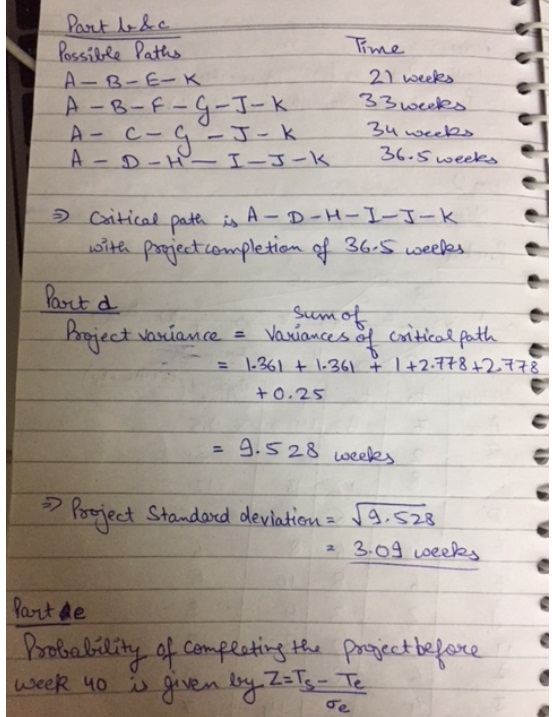 Part b&c
Possible Paths Time
A - B - E - K 21 weeks
A - B - F - G - J - K 33 weeks
A - C - G - J - K 34 weeks
A - D - H - I - J - K 36.5 weeks
⇒ Critical path is A - D - H - I - J - K
with project completion of 36.5 weeks
Part d
Project variance = Sum of Variances of critical path
= 1.361 + 1.361 + 1 + 2.778 + 2.778
+ 0.25
= 9.528 weeks
⇒ Project Standard deviation = √9.528
= 3.09 weeks
Part e
Probability of completing the project before
week 40 is given by Z = Ts - Te
σe